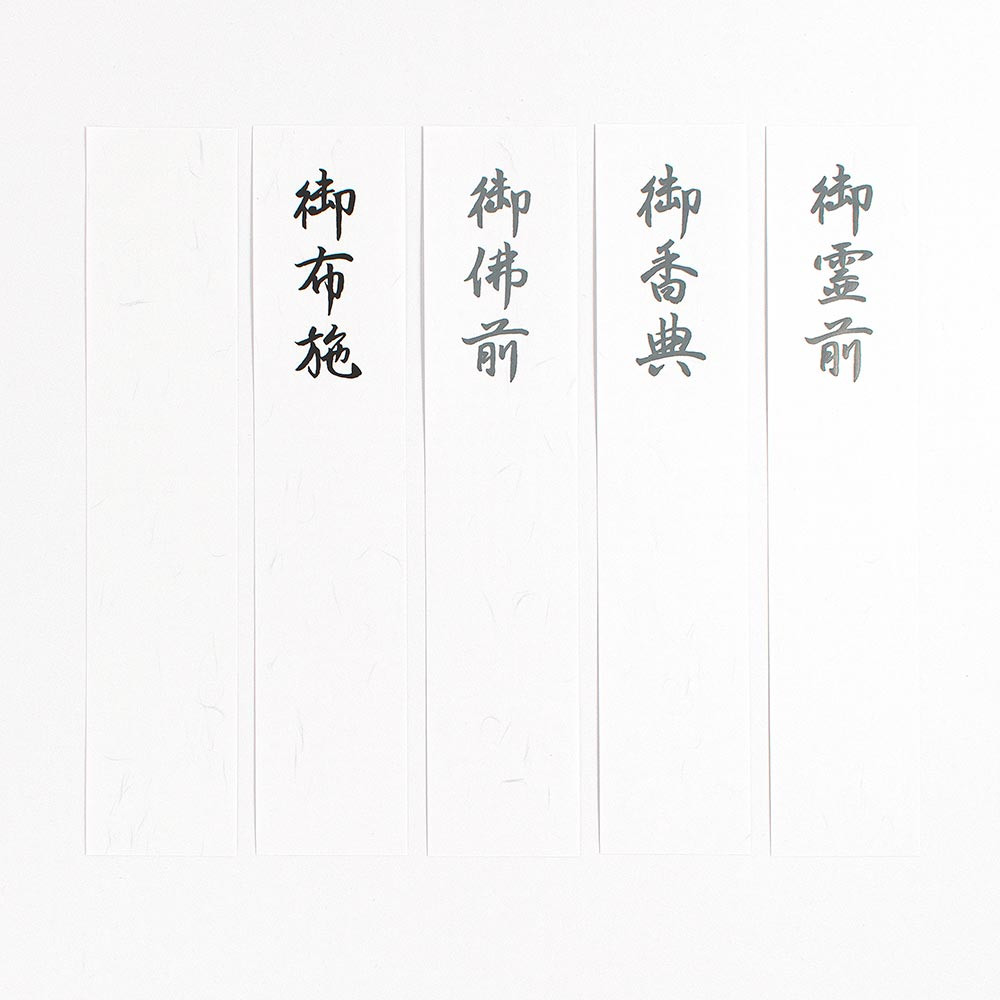 御霊前
御香典
御佛前
御布施